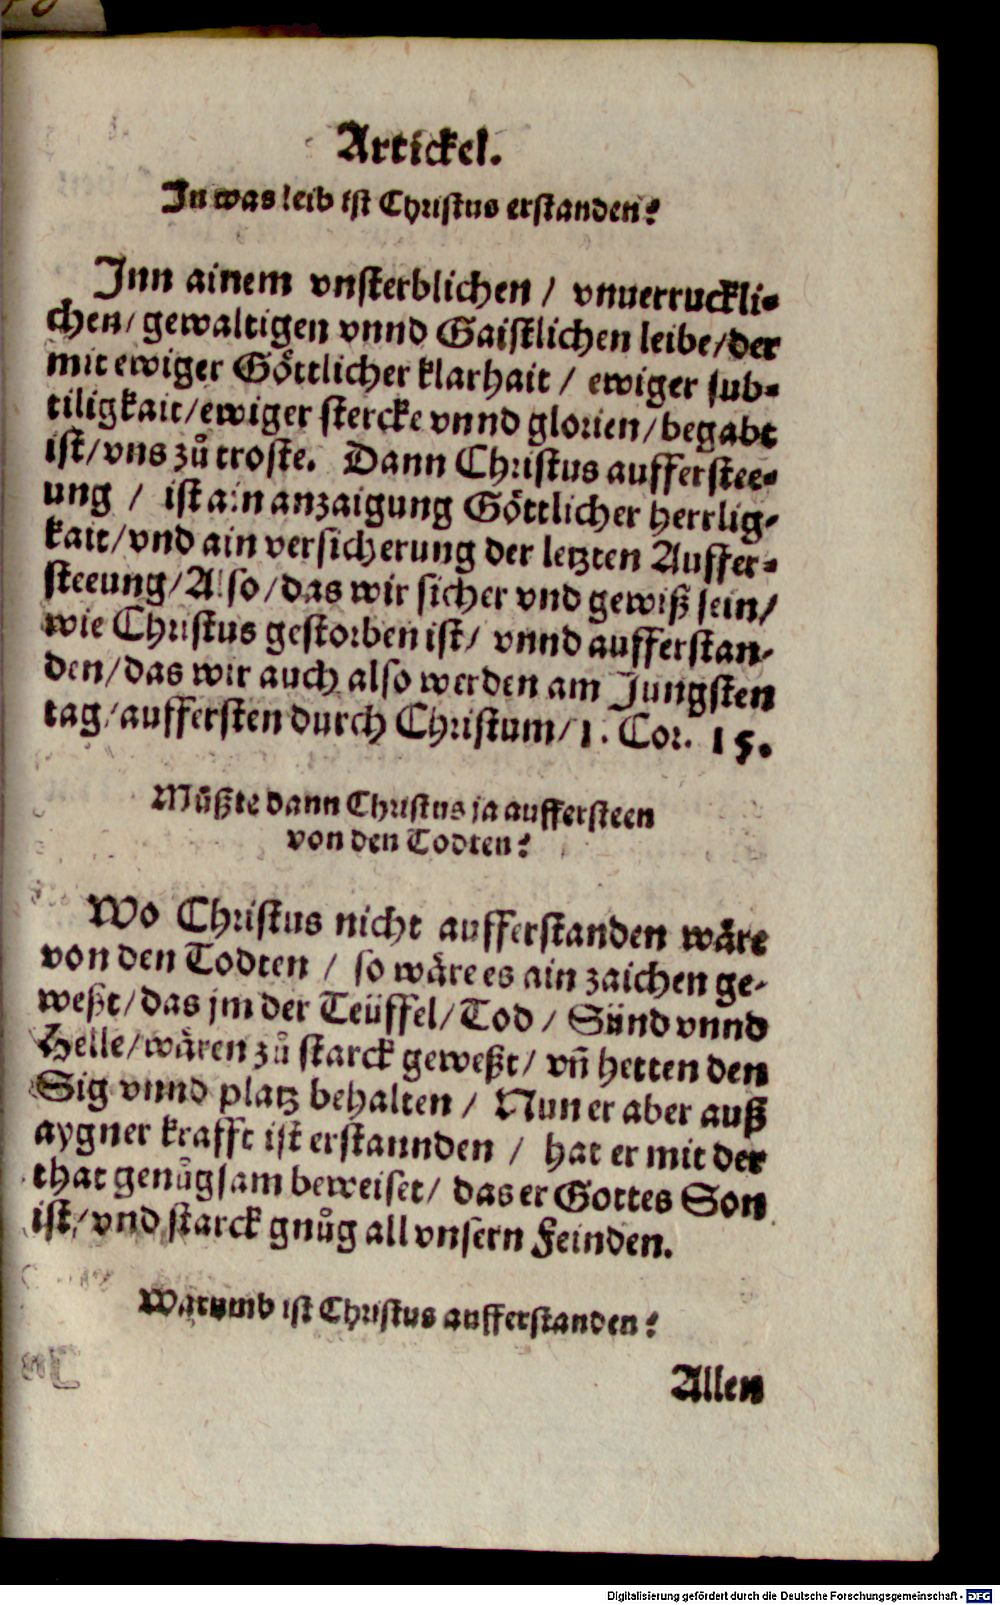 Artickel.
In was leib ist Christus erstanden?
Inn ainem vnsterblichen / vnuerruckli-
chen / gewaltigen vnnd Gaistlichen leibe / der
mit ewiger Göttlicher klarhait / ewiger sub-
tiligkait / ewiger stercke vnnd glorien / begabt
ist / vns zů troste. Dann Christus aufferstee-
ung / ist ain anzaigung Göttlicher herrlig-
kait / vnd ain versicherung der letzten Auffer-
steeung / Also / das wir sicher vnd gewiß sein /
wie Christus gestorben ist / vnnd aufferstan-
den / das wir auch also werden am Jungsten
tag / auffersten durch Christum / 1. Cor. 15.
Müßte dann Christus ja auffersteen
von den Todten?
Wo Christus nicht aufferstanden wäre
von den Todten / so wäre es ain zaichen ge-
weßt / das jm der Teüffel / Tod / Sünd vnnd
Helle / wären zů starck geweßt / vñ hetten den
Sig vnnd platz behalten / Nun er aber auß
aygner krafft ist erstannden / hat er mit der
that genůgsam beweiset / das er Gottes Son
ist / vnd starck gnůg all vnsern Feinden.
Warumb ist Christus aufferstanden?
Allen
Digitalisierung gefördert durch die Deutsche Forschungsgemeinschaft - DFG